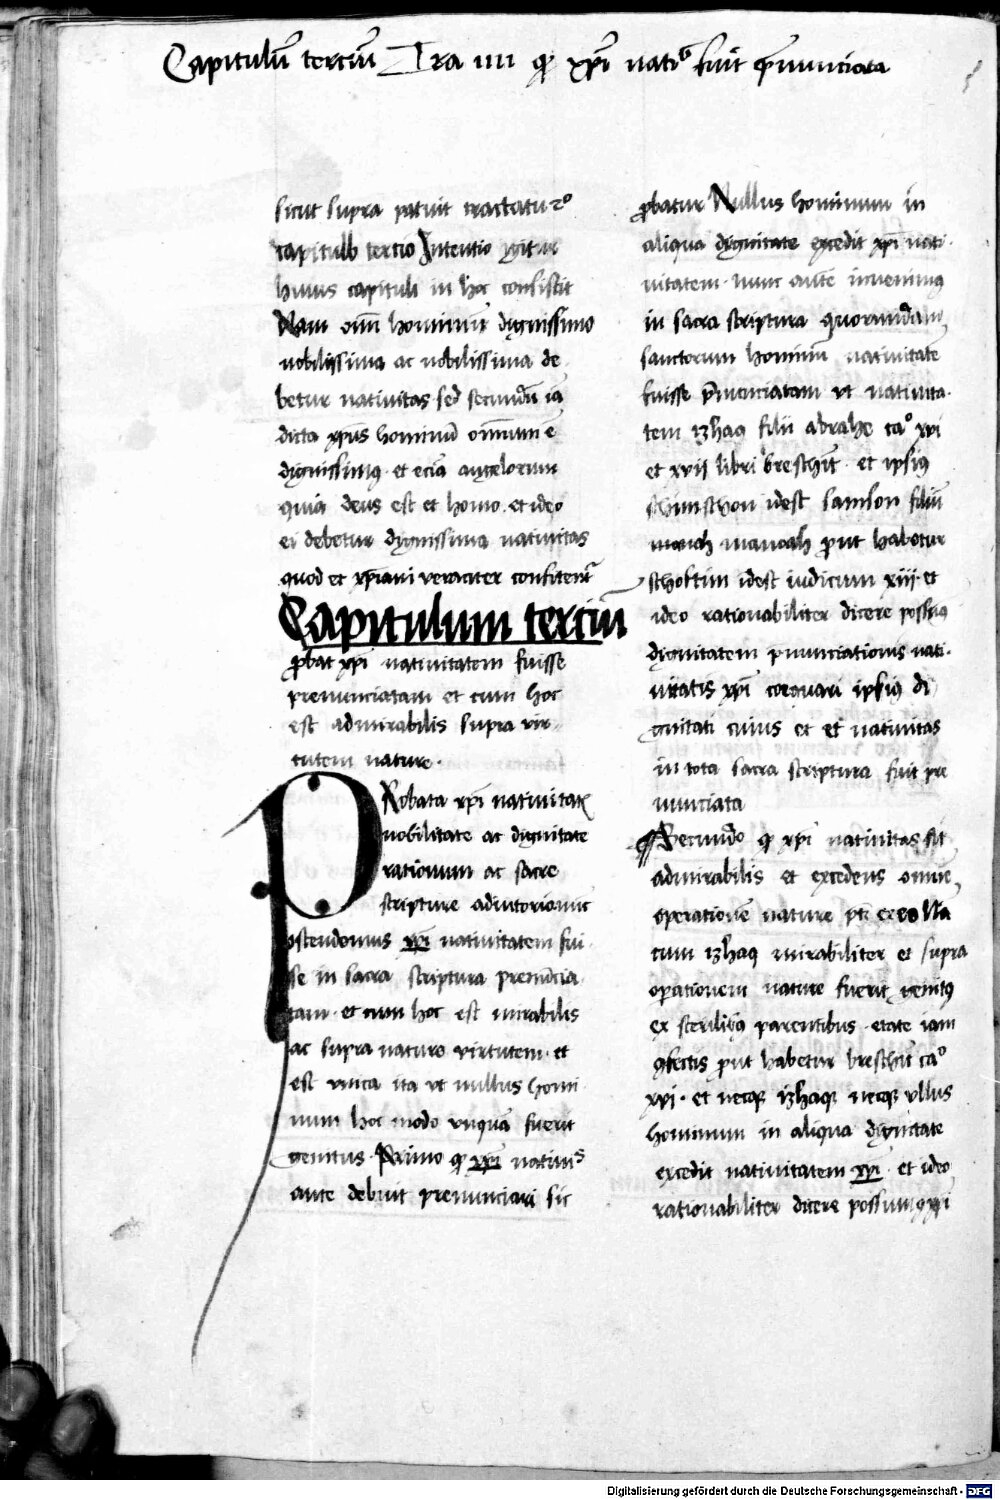 Capitulū terciū Tra iiii qꝫ xp̄i natiꝰ fuit p̄nunciata
sicut supra patuit tractatu 2º
capitulo tercio Intentio igitur
huius capituli in hoc consistit
Nam om̄ hominum dignissimo
nobilissima ac nobilissima de
betur nativitas sed secundū iā
dicta xp̄us hominū omnium ē
dignissimꝰ et eciā angelorum
quia deus est et homo et ideo
ei debetur dignissima nativitas
quod et xp̄iani veraciter confitentᷣ
Capitulum terciū
ꝓbat xp̄i nativitatem fuisse
prenunciatam et cum hoc
est admirabilis supra vir
tutem nature
PRobata xp̄i nativitatꝭ
nobilitate ac dignitate
rationum ac sacre
scripture adiutorio nunc
ostendomus xp̄i nativitatem fui
sse in sacra scriptura prenūcia
tam et cum hoc est mirabilis
ac supra nature virtutem et
est unica ita vt nullus homi
num hoc modo vnquā fuerit
genitus Primo qꝫ xp̄i nativitꝰ
ante debuit prenunciari sic
ꝓbatur Nullus hominum in
aliqua dignitate excedit xp̄i nati
vitatem nunc autē invenimꝰ
in sacra scriptura quorundam
sanctorum hominū nativitatē
fuisse p̄nunciatam vt nativita
tem izhaq filii abrahe caº xvi
et xvii libri breschit et ipsiꝰ
schimschon idest samson filiū
manoah ꝓut habetur
schoftim idest iudicum xiii et
ideo rationabiliter dicere possumꝰ
dignitatem pnunciationis nati
vitatis xp̄i coequari ipsiꝰ di
gnitati cuius et et nativitas
in tota sacra scriptura fuit pre
nunciata
Secundo qꝫ xp̄i nativitas sit
admirabilis et excedens omnē
operationē nature
cum izhaq mirabiliter et supra
oꝑationem nature fuerit genitꝰ
ex sterilibꝰ parentibus etate iam
ꝯfectis ꝓut habetur breschit caº
xvi et neqꝫ izhaq neqꝫ vllus
hominum in aliqua dignitate
excedit nativitatem xp̄i et ideo
rationabiliter dicere possumꝰ xp̄i
Digitalisierung gefördert durch die Deutsche Forschungsgemeinschaft - DFG